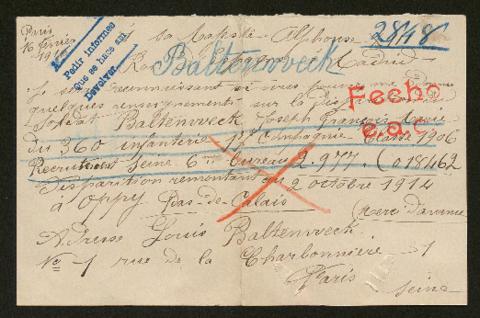 Paris
16 février
Sa Majesté Alphonse
28/1/8
Pedir informes
que se hace así
Devolver
Madrid
Baltenweck
Je serais reconnaissant si vous
quelques renseignements sur la
Fecho
Soldat Baltenweck Joseph François Marie
e.a.c.
du 360 infanterie 17 Compagnie Classe 1906
Recrutement Seine 6me bureau 2.977 (018462
Disparition remontant au 2 octobre 1914
à Oppy Pas-de-Calais
(Merci d'avance
Adresse Louis Baltenweck
No 1 rue de la Charbonnière 1
Paris
Seine